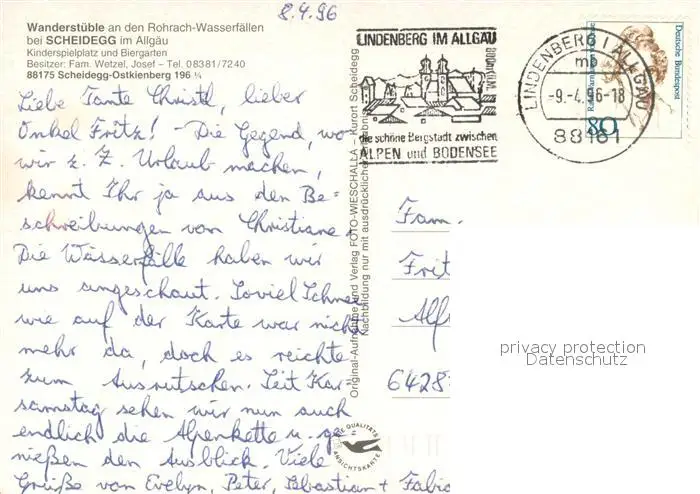 8.4.96
Wanderstüble an den Rohrach-Wasserfällen
bei SCHEIDEGG im Allgäu
Kinderspielplatz und Biergarten
Besitzer: Fam. Wetzel, Josef – Tel. 08381/7240
88175 Scheidegg-Ostkienberg 196 ¼
Liebe Tante Christl, lieber
Onkel Fritz! Die Gegend, wo
wir z. Z. Urlaub machen,
kennt Ihr ja aus den Be=
schreibungen von Christiane.
Die Wasserfälle haben wir
uns angeschaut. Soviel Schnee
wie auf der Karte war nicht
mehr da, doch es reichte
zum Ausrutschen. Seit Kar=
samstag sehen wir nun auch
endlich die Alpenkette u. ge=
nießen den Ausblick. Viele
Grüße von Evelyn, Peter, Sebastian + Fabio
Original-Aufnahme und Verlag FOTO-WIESCHALLA – Kurort Scheidegg
Nachbildung nur mit ausdrücklicher
LINDENBERG IM ALLGÄU
800m ü.M.
die schöne Bergstadt zwischen
ALPEN und BODENSEE
LINDENBERG I ALLGÄU
mb
-9.-4.96-18
88161
Deutsche Bundespost
80
Fam.
Frit
Alf
6428
QUALITÄTS
ANSICHTSKARTE
privacy protection
Datenschutz